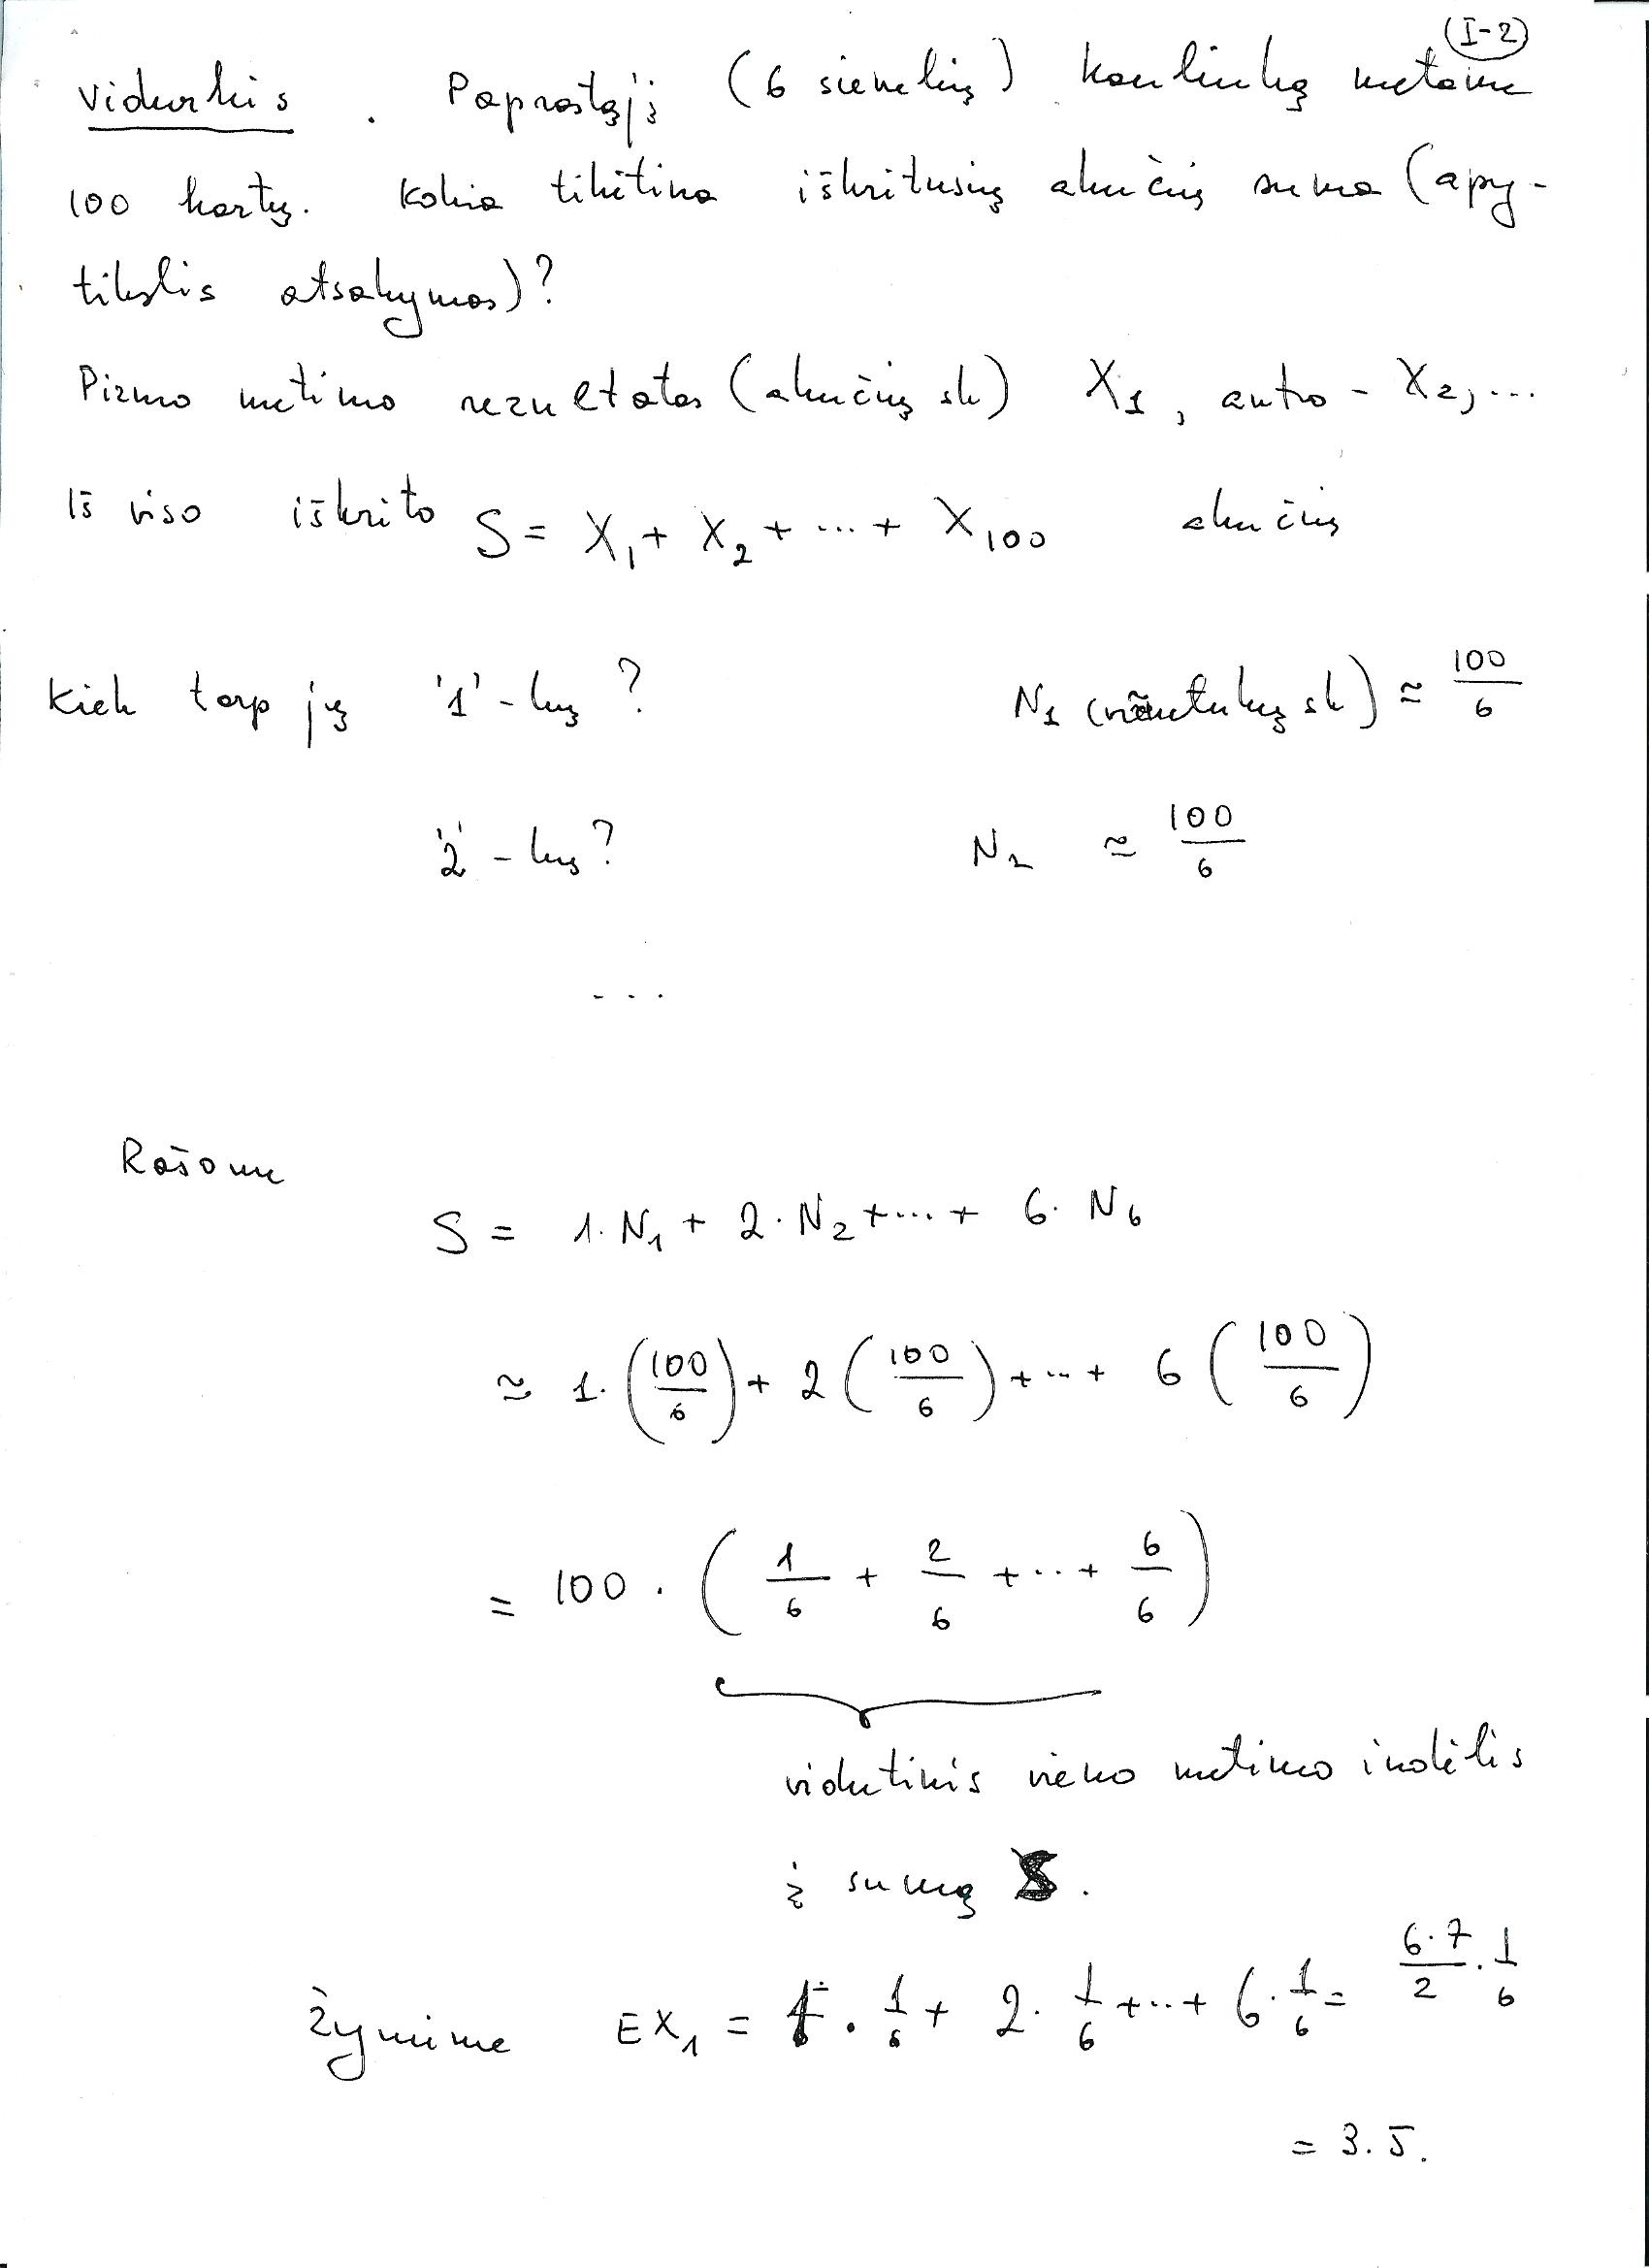 (I-2)
Vidurkis. Paprastąjį (6 sienelių) kauliuką metame
100 kartų. Kokia tikėtina iškritusių akučių suma (apy-
tikslis atsakymas)?
Pirmo metimo rezultatas (akučių sk) X₁, antro - X₂,...
Iš viso iškrito S = X₁ + X₂ + ... + X₁₀₀ akučių
Kiek tarp jų '1'-kų? N₁ (vienetukų sk) ≈ 100/6
'2'-kų? N₂ ≈ 100/6
...
Rašome
S = 1·N₁ + 2·N₂ + ... + 6·N₆
≈ 1·(100/6) + 2(100/6) + ... + 6(100/6)
= 100·(1/6 + 2/6 + ... + 6/6)
vidutinis vieno metimo indėlis
į sumą S.
Žymime EX₁ = 1·1/6 + 2·1/6 + ... + 6·1/6 = 6·7/2·1/6
= 3.5.